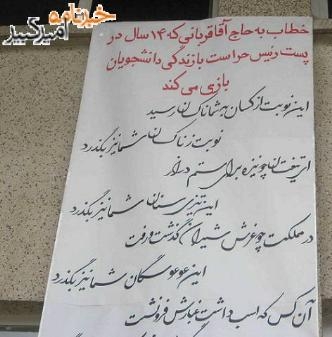 خبرنامه
امیرکبیر
خطاب به حاج آقا قربانی که ۱۴ سال در
پست رئیس حراست با زندگی دانشجویان
بازی می کند
این نوبت از کسان به شما ناکسان رسید
نوبت ز ناکسان شما نیز بگذرد
ای تیغتان چو نیزه برای ستم دراز
این تیزی سنان شما نیز بگذرد
در مملکت چو غرش شیران گذشت و رفت
این عوعو سگان شما نیز بگذرد
آن کس که اسب داشت غبارش فرونشست